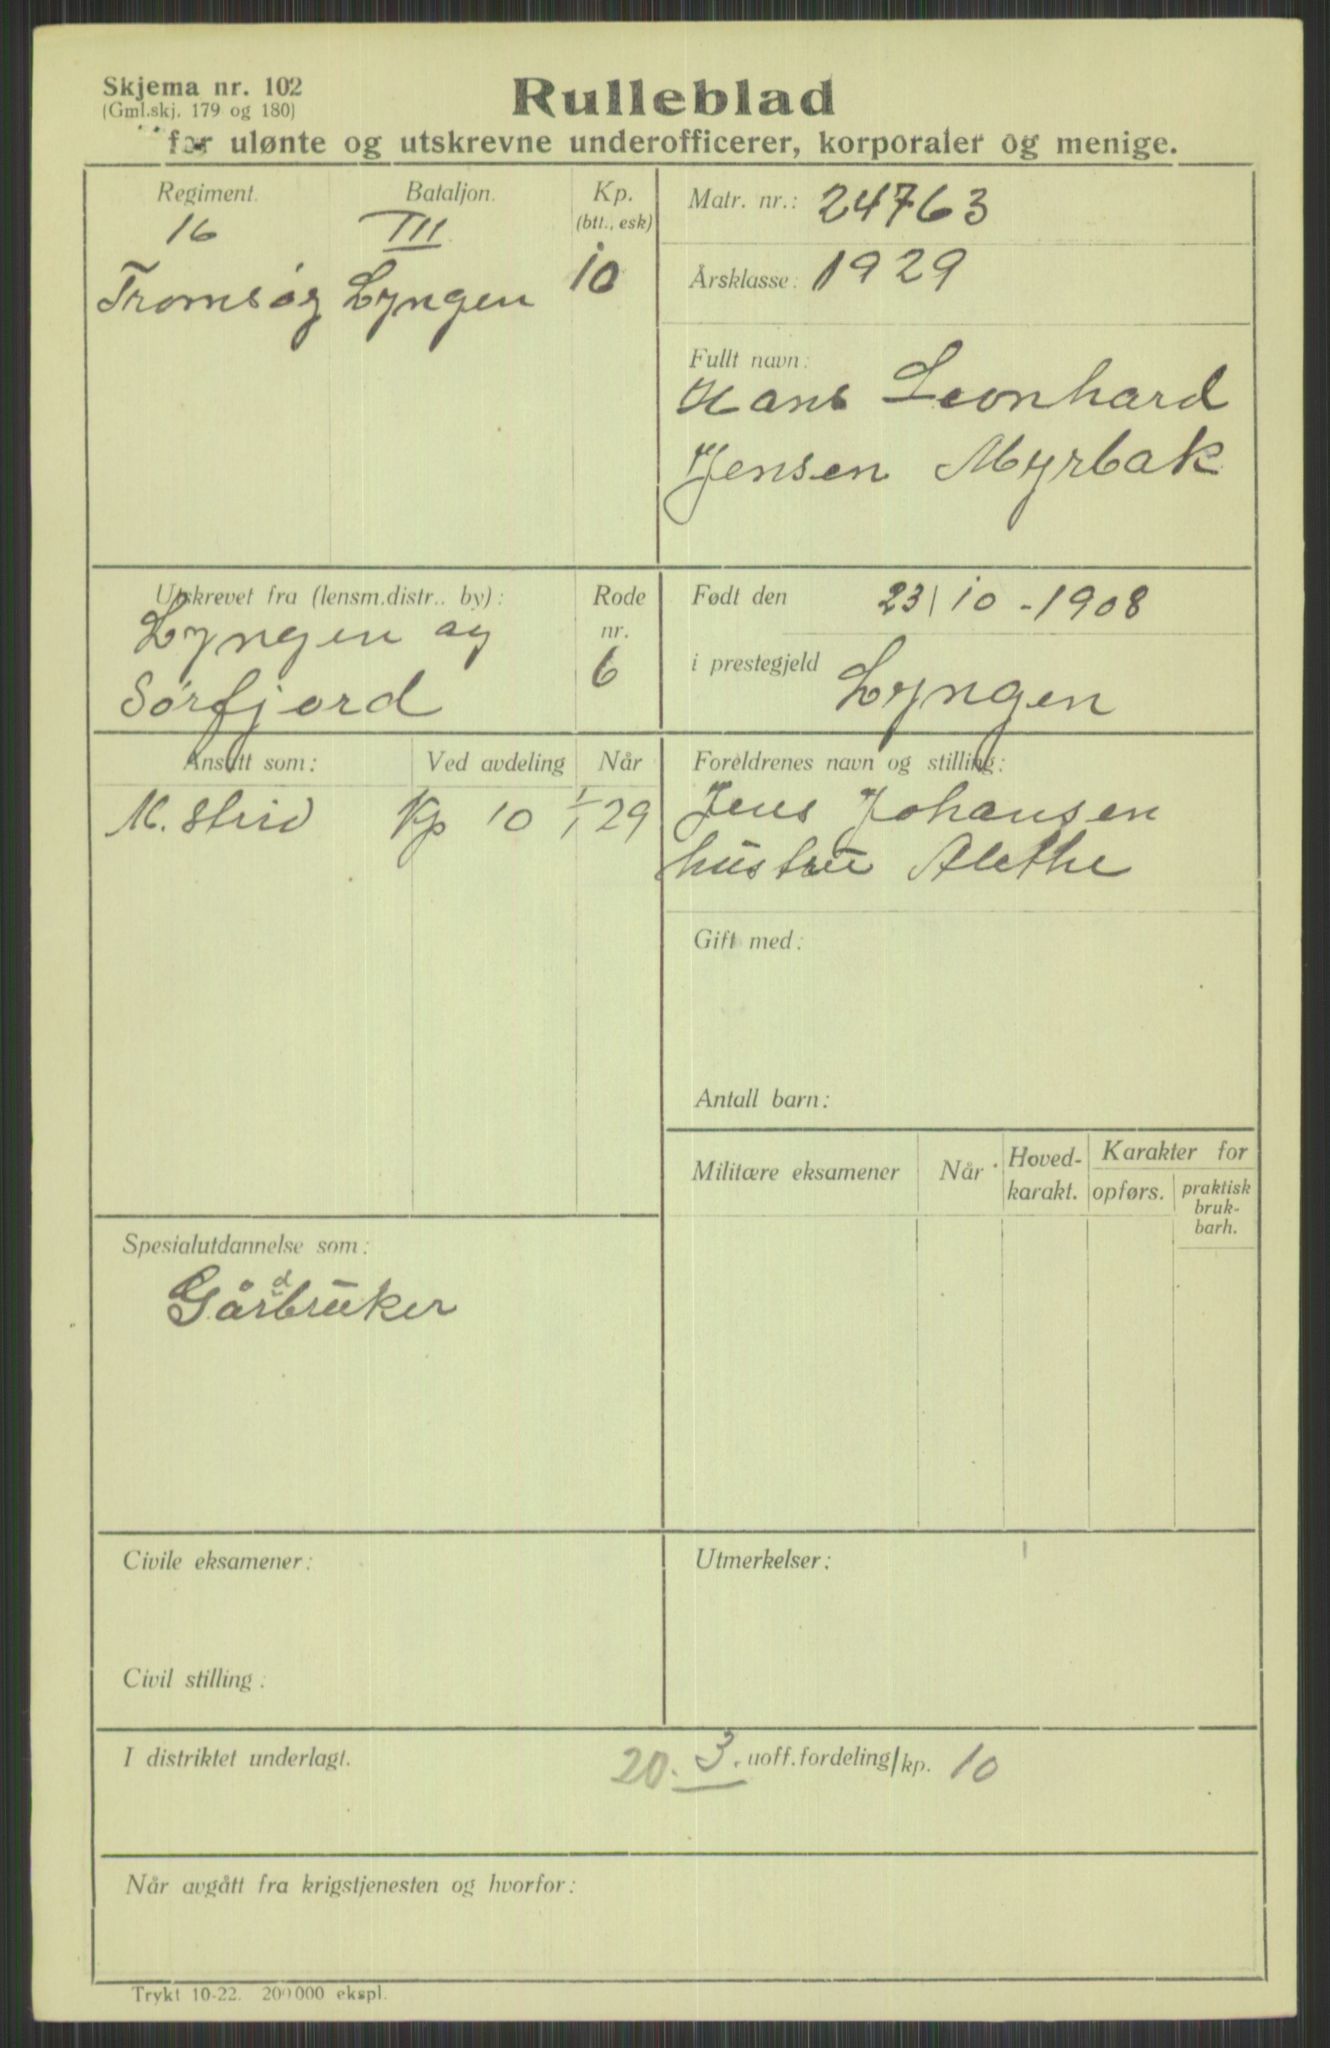 Skjema nr. 102
(Gml.skj. 179 og 180)
Rulleblad
for ulønte og utskrevne underofficerer, korporaler og menige.
Regiment. Bataljon. Kp.
(btt., esk)
16 III 10
Tromsö og Lyngen
Matr. nr.: 24763
Årsklasse: 1929
Fullt navn:
Hans Leonhard
Jensen Myrbak
Utskrevet fra (lensm.distr.. by): Rode
nr.
Lyngen og
Sörfjord 6
Født den 23/10-1908
i prestegjeld Lyngen
Ansatt som: Ved avdeling Når
M. Strid Kp 10 1/1 29
Foreldrenes navn og stilling:
Jens Johansen
hustru Alethe
Gift med:
Antall barn:
Militære eksamener Når Hoved-
karakt. Karakter for
opførs. praktisk
bruk-
barh.
Spesialutdannelse som:
Gårdbruker
Civile eksamener:
Civil stilling:
Utmerkelser:
I distriktet underlagt. 20. 3. uoff.fordeling/kp. 10
Når avgått fra krigstjenesten og hvorfor:
Trykt 10-22. 200 000 ekspl.